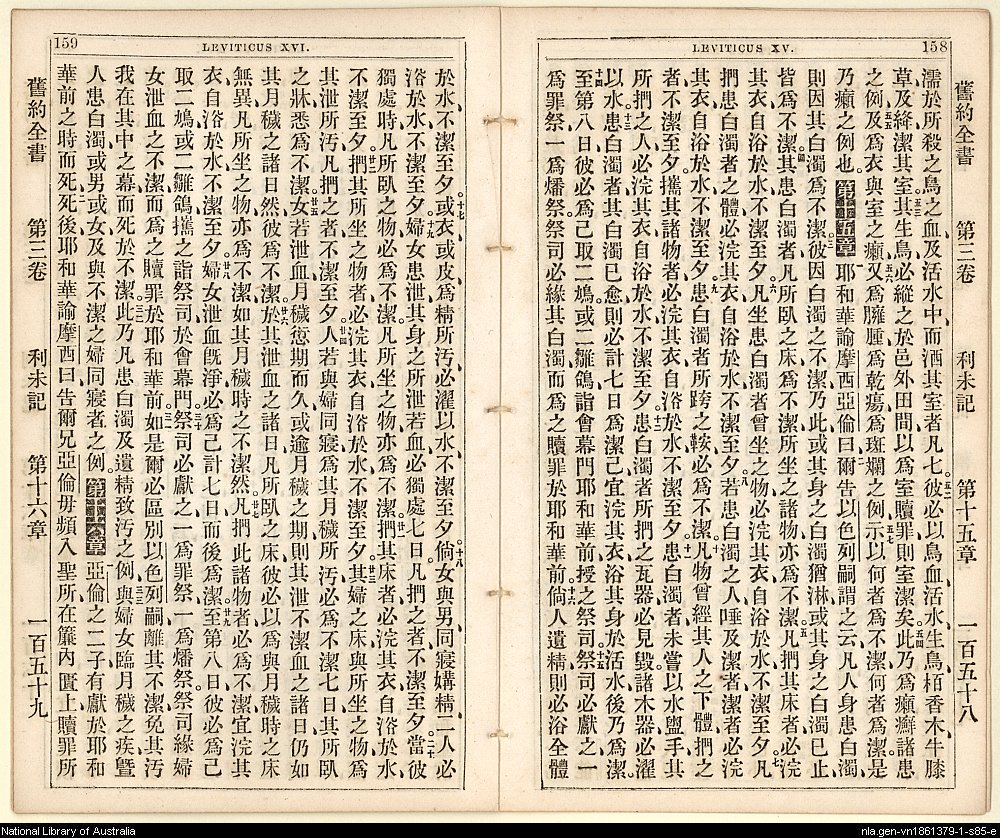 158
LEVITICUS XV.
舊約全書 第三卷 利未記 第十五章 一百五十八
濡於所殺之鳥之血及活水中而洒其室者凡七彼必以鳥血活水生鳥栢香木牛膝
草及絳潔其室其生鳥必縱之於邑外田間以爲室贖罪則室潔矣此乃爲癩癬諸患
之例及爲衣與室之癩又爲臃腫爲乾瘍爲斑斕之例示以何者爲不潔何者爲潔是
乃癩之例也第十五章耶和華諭摩西亞倫曰爾告以色列嗣謂之云凡人身患白濁
則因其白濁爲不潔彼因白濁之不潔乃此或其身之白濁猶淋或其身之白濁已止
皆爲不潔其患白濁者凡所臥之床爲不潔所坐之諸物亦爲不潔凡捫其床者必浣
其衣自浴於水不潔至夕凡坐患白濁者曾坐之物必浣其衣自浴於水不潔至夕凡
捫患白濁者之體必浣其衣自浴於水不潔至夕若患白濁之人唾及潔者潔者必浣
其衣自浴於水不潔至夕患白濁者所跨之鞍必爲不潔凡物曾經其人之下體捫之
者不潔至夕攜其諸物者必浣其衣自浴於水不潔至夕患白濁者未嘗以水盥手其
所捫之人必浣其衣自浴於水不潔至夕患白濁者所捫之瓦器必見毀諸木器必濯
以水患白濁者其白濁已愈則必計七日爲潔己宜浣其衣浴其身於活水後乃爲潔
至第八日彼必爲己取二鳩或二雛鴿詣會幕門耶和華前授之祭司祭司必獻之一
爲罪祭一爲燔祭祭司必緣其白濁而爲之贖罪於耶和華前倘人遺精則必浴全體
159
LEVITICUS XVI.
於水不潔至夕或衣或皮爲精所汚必濯以水不潔至夕倘女與男同寢媾精二人必
浴於水不潔至夕婦女患泄其身之所泄若血必獨處七日凡捫之者不潔至夕當彼
獨處時凡所臥之物必爲不潔凡所坐之物亦爲不潔捫其床者必浣其衣自浴於水
不潔至夕捫其所坐之物者必浣其衣自浴於水不潔至夕其婦之床與所坐之物爲
其泄所汚凡捫之者不潔至夕人若與婦同寢爲其月穢所汚必爲不潔七日其所臥
之牀悉爲不潔女若泄血月穢愆期而久或逾月穢之期則其泄不潔血之諸日仍如
其月穢之諸日然彼爲不潔於其泄血之諸日凡所臥之床彼必以爲與月穢時之床
無異凡所坐之物亦爲不潔如其月穢時之不潔然凡捫此諸物者必爲不潔宜浣其
衣自浴於水不潔至夕婦女泄血旣淨必爲己計七日而後爲潔至第八日彼必爲己
取二鳩或二雛鴿攜之詣祭司於會幕門祭司必獻之一爲罪祭一爲燔祭祭司緣婦
女泄血之不潔而爲之贖罪於耶和華前如是爾必區別以色列嗣離其不潔免其汚
我在其中之幕而死於不潔此乃凡患白濁及遺精致汚之例與婦女臨月穢之疾曁
人患白濁或男或女及與不潔之婦同寢者之例第十六章亞倫之二子有獻於耶和
華前之時而死死後耶和華諭摩西曰告爾兄亞倫毋頻入聖所在簾內匱上贖罪所
舊約全書 第三卷 利未記 第十六章 一百五十九
National Library of Australia
nla.gen-vn1861379-1-s85-e